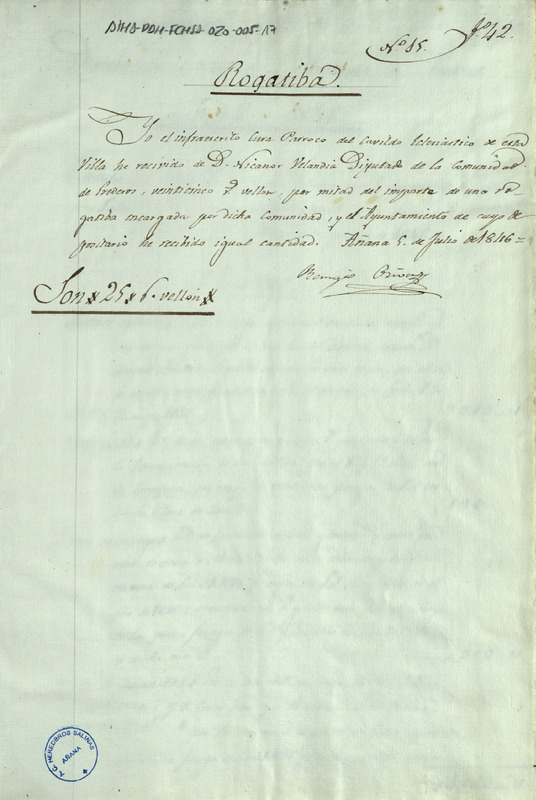 AIHA-DDH-FCHSA-020-005-17
Nº 15.
Fº 42.
Rogatiba.
Yo el infraescrito Cura Parroco del Cavildo Eclesiastico de esta
Villa he recivido de D. Nicanor Velandia Diputado de la Comunidad
de Erederos, veinticinco rs vellon, por mitad del importe de una ro-
gatiba encargada por dicha Comunidad, y el Ayuntamiento de cuyo de-
positario he recibido igual cantidad. Añana 5. de Julio de 1846=
Remigio
Son 25 rs. vellon
A.C. HEREDEROS SALINAS
AÑANA